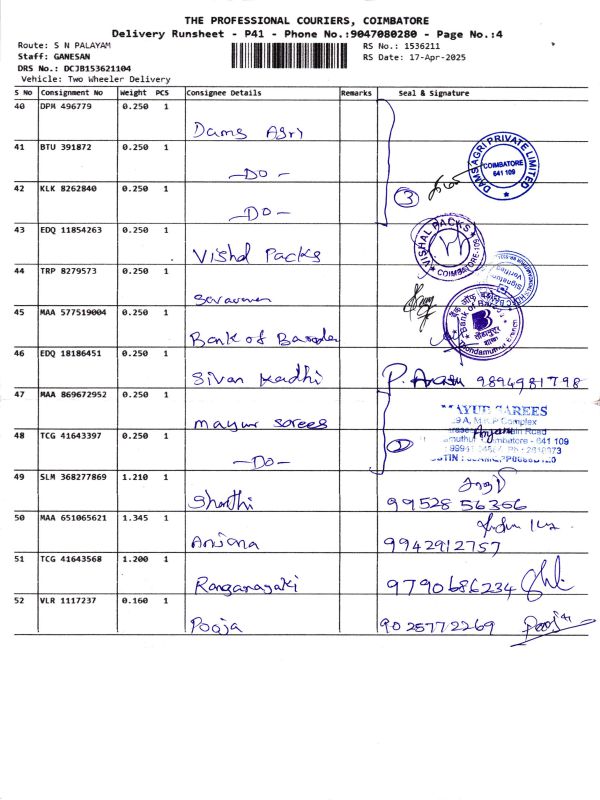 THE PROFESSIONAL COURIERS, COIMBATORE
Delivery Runsheet - P41 - Phone No.:9047080280 - Page No.:4
Route: S N PALAYAM
RS No.: 1536211
Staff: GANESAN
RS Date: 17-Apr-2025
DRS No.: DCJB153621104
Vehicle: Two Wheeler Delivery
S No Consignment No Weight PCS Consignee Details Remarks Seal & Signature
40 DPM 496779 0.250 1 Dams Agri
41 BTU 391872 0.250 1 -Do-
DAMS AGRI PRIVATE LIMITED
COIMBATORE
641 109
42 KLK 8262840 0.250 1 -Do- 3
43 EDQ 11854263 0.250 1 Vishal Packs
VISHAL PACKS
COIMBATORE-109
44 TRP 8279573 0.250 1 Saravanan
Signature
Verified
45 MAA 577519004 0.250 1 Bank of Baroda
Bank of Baroda
Thondamuthur Branch
46 EDQ 18186451 0.250 1 Sivan Kadhi 9894981798
47 MAA 869672952 0.250 1 Mayur Sarees
MAYUR SAREES
Complex
Main Road
Coimbatore - 641 109
48 TCG 41643397 0.250 1 -Do-
49 SLM 368277869 1.210 1 Shanthi 99528 56366
50 MAA 651065621 1.345 1 Anjana 9942912757
51 TCG 41643568 1.200 1 Ranganayaki 9790686234
52 VLR 1117237 0.160 1 Pooja 9025772269 Pooja